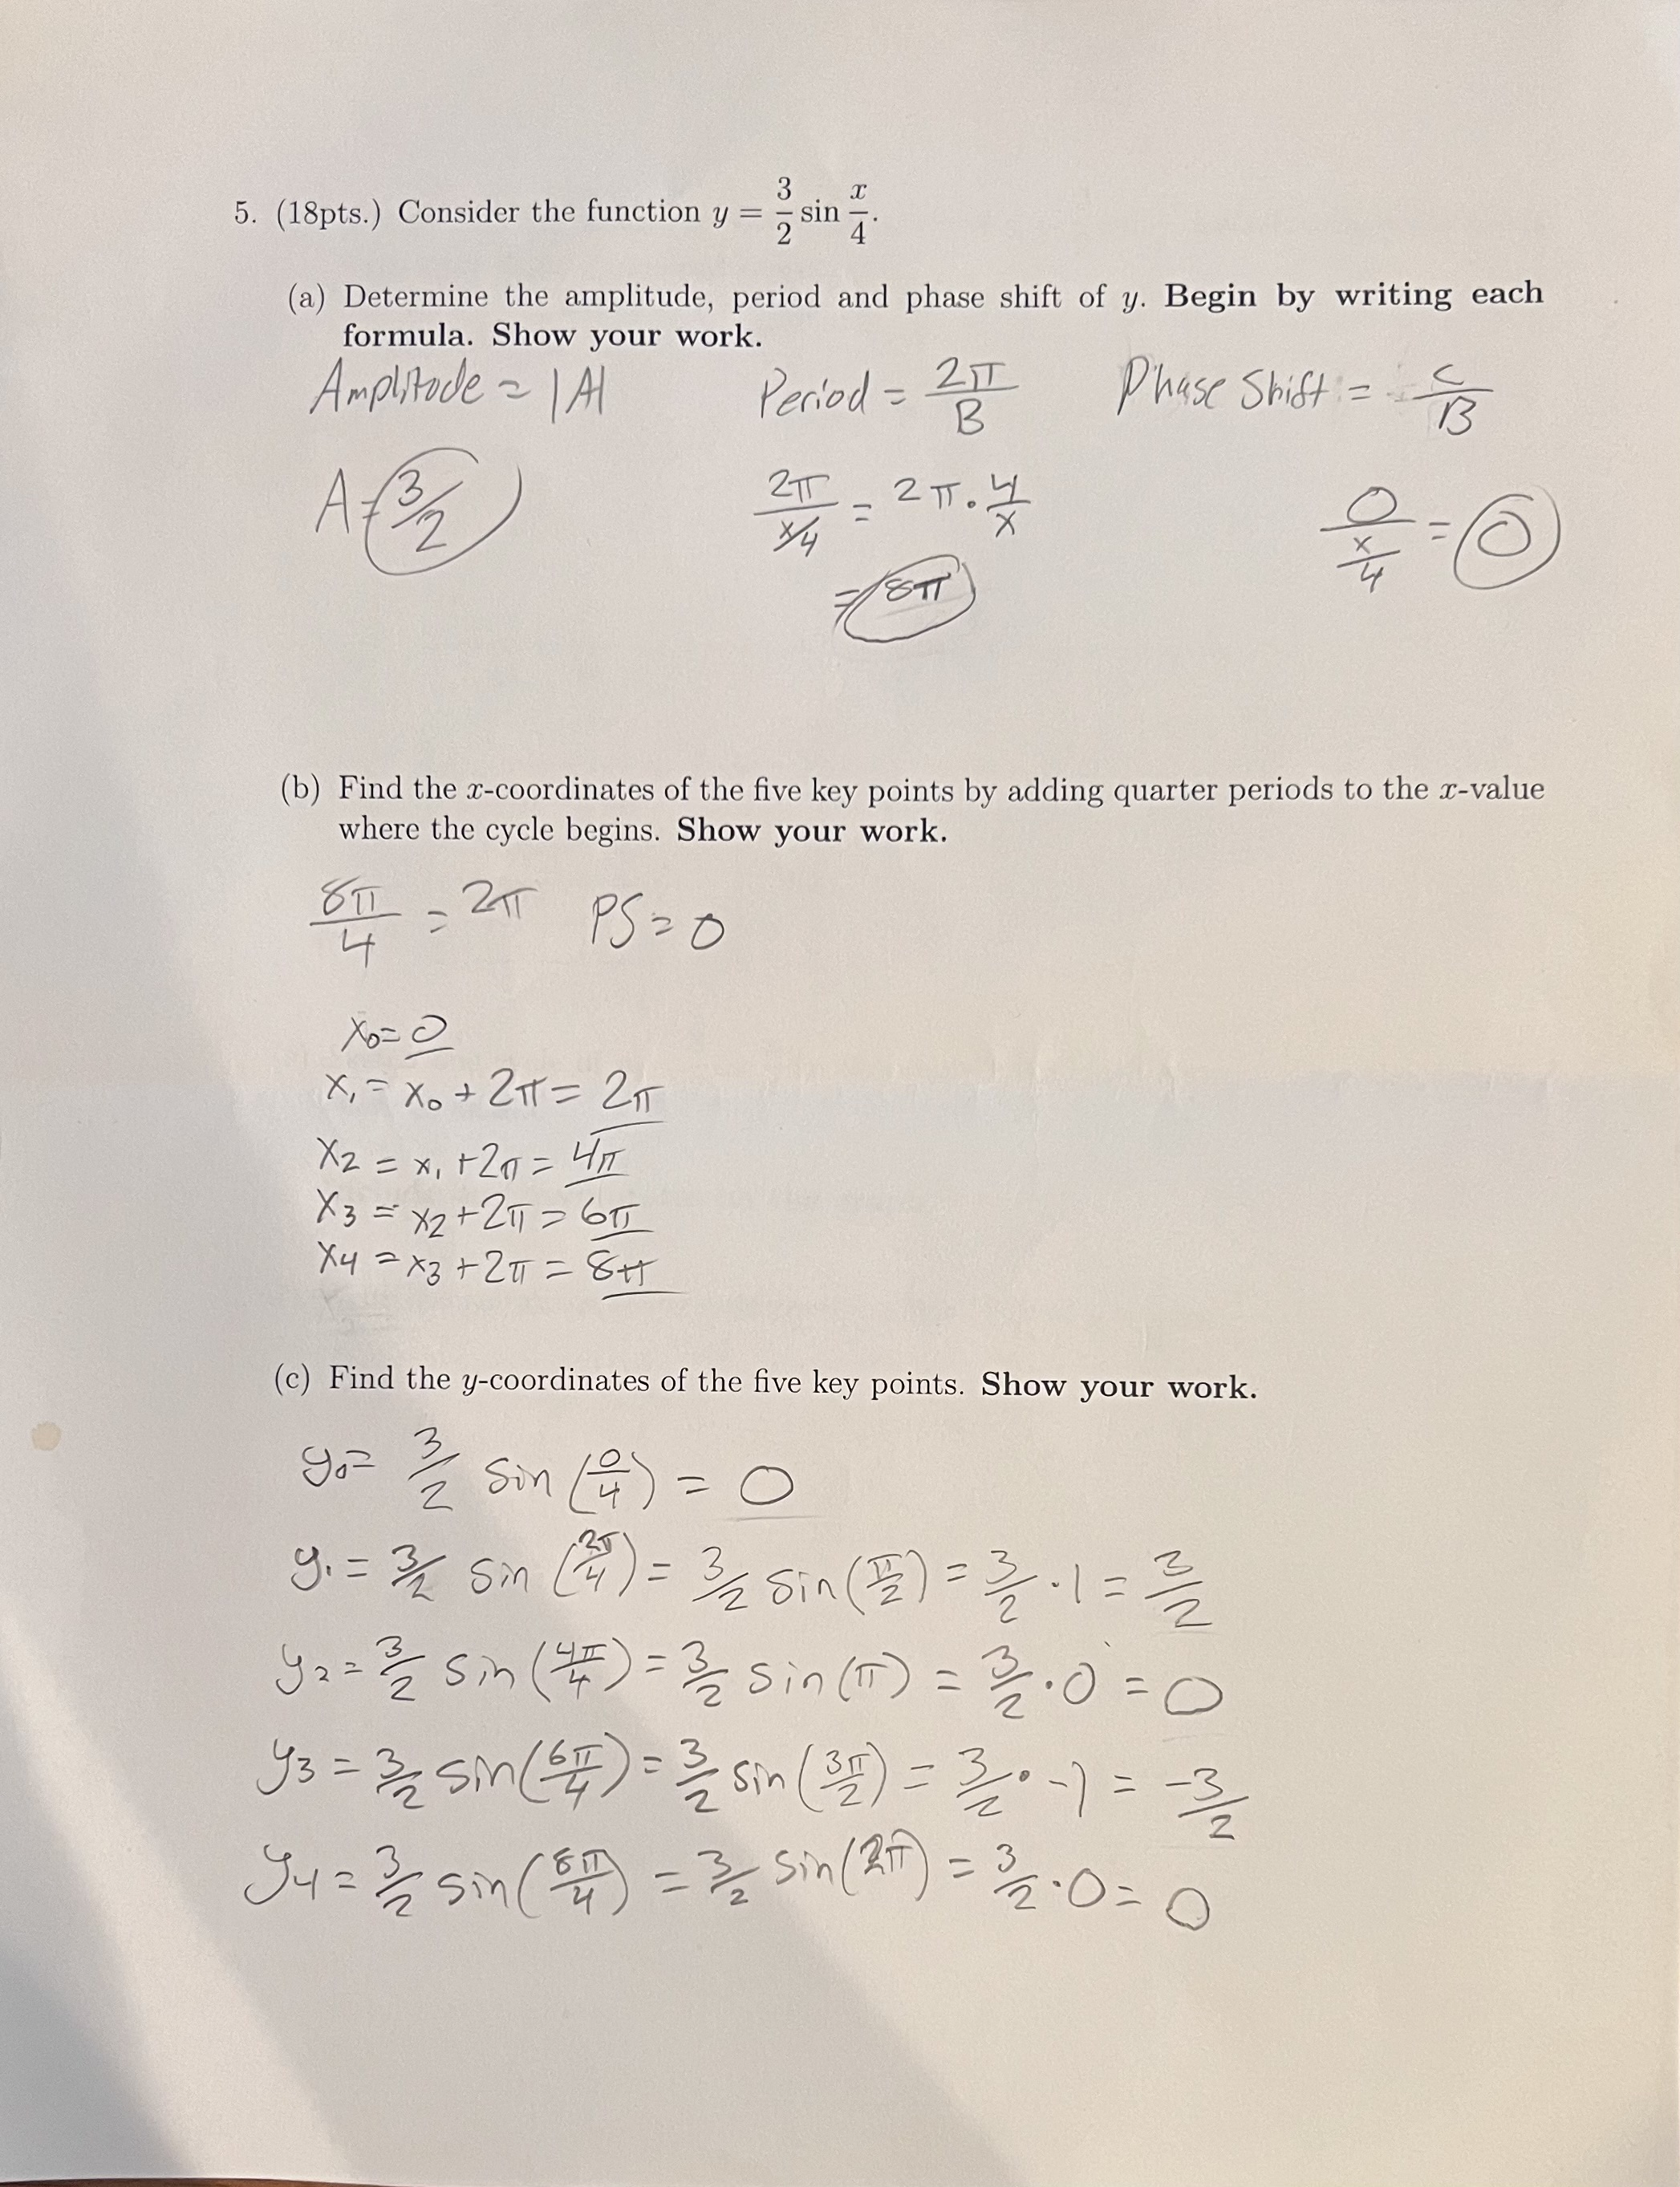 5. (18pts.) Consider the function y = 3/2 sin x/4.
(a) Determine the amplitude, period and phase shift of y. Begin by writing each
formula. Show your work.
Amplitude = |A| Period = 2π/B Phase Shift = C/B
A = 3/2 2π/(x/4) = 2π · 4/x 0/(x/4) = 0
= 8π
(b) Find the x-coordinates of the five key points by adding quarter periods to the x-value
where the cycle begins. Show your work.
8π/4 = 2π PS = 0
x₀ = 0
x₁ = x₀ + 2π = 2π
x₂ = x₁ + 2π = 4π
x₃ = x₂ + 2π = 6π
x₄ = x₃ + 2π = 8π
(c) Find the y-coordinates of the five key points. Show your work.
y₀ = 3/2 sin (0/4) = 0
y₁ = 3/2 sin (2π/4) = 3/2 sin (π/2) = 3/2 · 1 = 3/2
y₂ = 3/2 sin (4π/4) = 3/2 sin (π) = 3/2 · 0 = 0
y₃ = 3/2 sin (6π/4) = 3/2 sin (3π/2) = 3/2 · -1 = -3/2
y₄ = 3/2 sin (8π/4) = 3/2 sin (2π) = 3/2 · 0 = 0